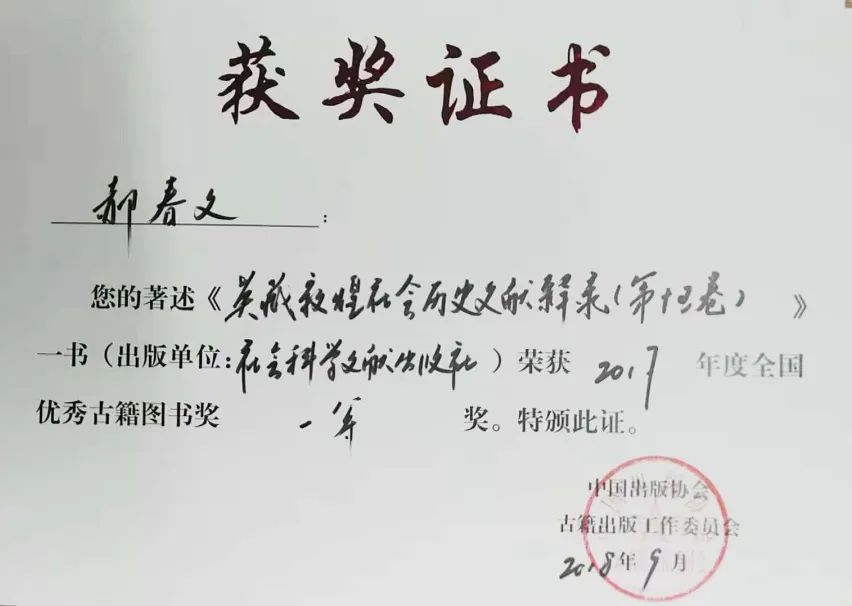 获奖证书
郝春文：
您的著述《英藏敦煌社会历史文献释录（第十五卷）》
一书（出版单位：社会科学文献出版社）荣获 2017 年度全国
优秀古籍图书奖 一等 奖。特颁此证。
中国出版协会
古籍出版工作委员会
2018年9月